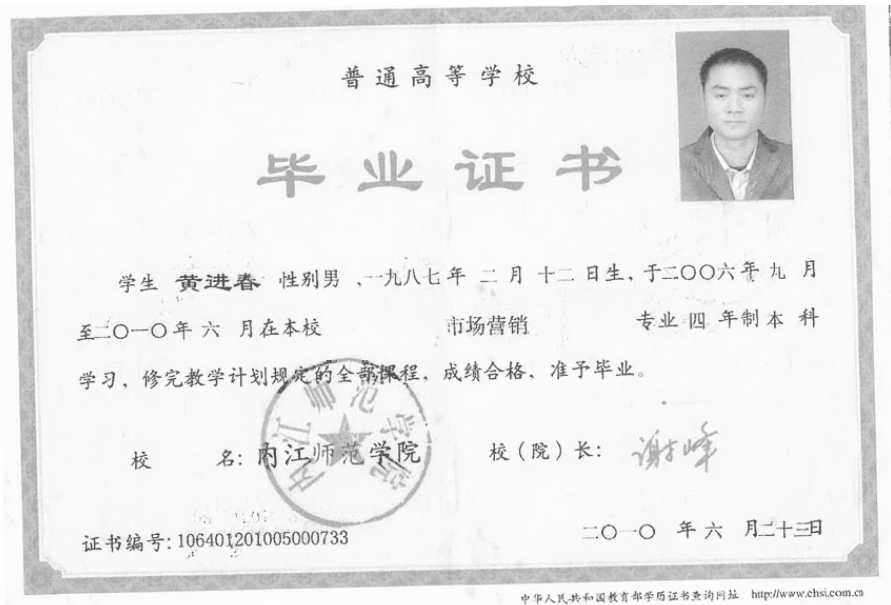 普通高等学校
毕业证书
学生 黄进春 性别男，一九八七年 二 月 十二 日生，于二〇〇六年 九 月
至二〇一〇年 六 月在本校 市场营销 专业 四 年制 本 科
学习，修完教学计划规定的全部课程，成绩合格，准予毕业。
校 名：内江师范学院 校（院）长：谢峰
内江师范学院
证书编号：106401201005000733 二〇一〇 年 六 月二十三日
中华人民共和国教育部学历证书查询网址 http://www.chsi.com.cn